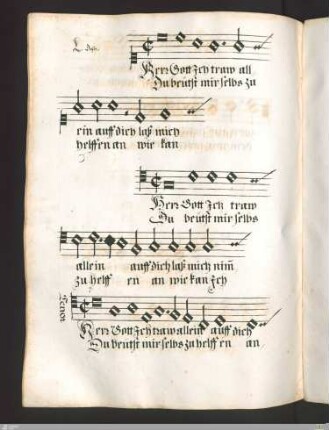 Herr Gott Ich traw all
Du beutst mir selbs zu
ein auff dich laß mich
helffen an wie kan
Herr Gott Ich traw
Du beutst mir selbs
allein auff dich laß mich nim̅
zu helff en an wie kan Ich
Tenor
Herr Gott Ich traw allein auff dich
Du beutst mir selbs zu helff en an